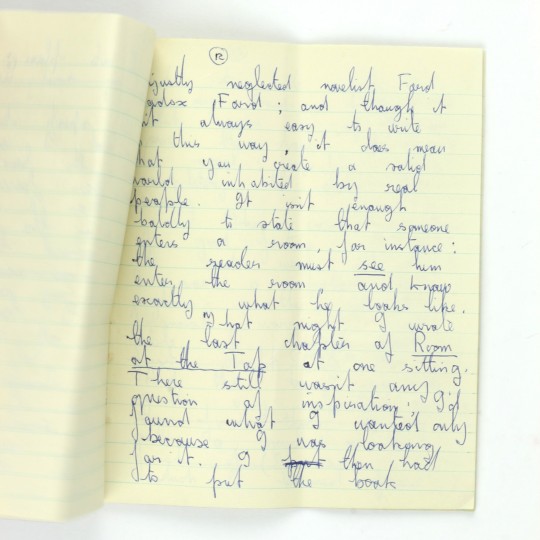 12
justly neglected novelist Ford
Madox Ford; and though it
not always easy to write
this way, it does mean
that you create a solid
world inhabited by real
people. It isn't enough
baldly to state that someone
enters a room, for instance:
the reader must see him
enter the room and know
exactly what he looks like.
That night I wrote
the last chapter of Room
at the Top at one sitting.
There still wasn't any
question of inspiration; I'd
found what I wanted only
because I was looking
for it. I then had
to put the book